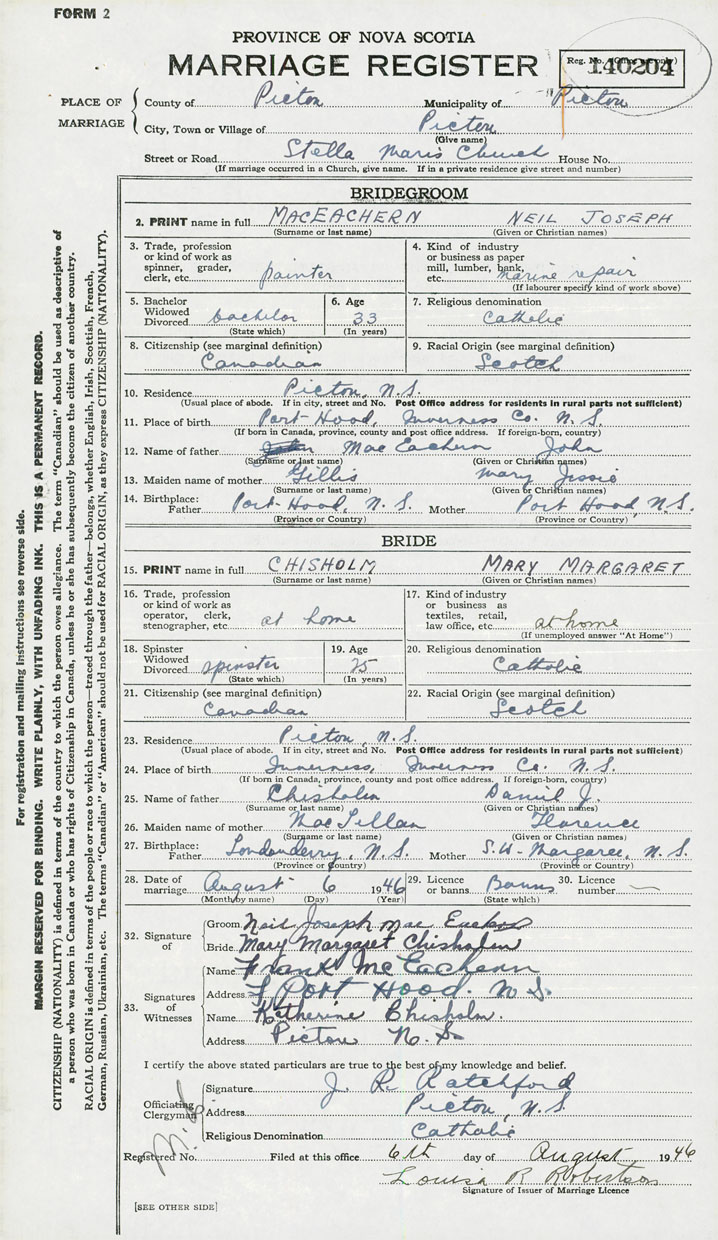 FORM 2
PROVINCE OF NOVA SCOTIA
MARRIAGE REGISTER
Reg. No. (Office use only)
140204
PLACE OF MARRIAGE
County of Pictou Municipality of Pictou
City, Town or Village of Pictou
(Give name)
Street or Road Stella Maris Church House No.
(If marriage occurred in a Church, give name. If in a private residence give street and number)
BRIDEGROOM
2. PRINT name in full MACEACHERN NEIL JOSEPH
(Surname or last name) (Given or Christian names)
3. Trade, profession or kind of work as spinner, grader, clerk, etc. painter
4. Kind of industry or business as paper mill, lumber, bank, etc. marine repair
(If labourer specify kind of work above)
5. Bachelor Widowed Divorced bachelor
(State which)
6. Age 33
(In years)
7. Religious denomination Catholic
8. Citizenship (see marginal definition) Canadian
9. Racial Origin (see marginal definition) Scotch
10. Residence Pictou, N.S.
(Usual place of abode. If in city, street and No. Post Office address for residents in rural parts not sufficient)
11. Place of birth Port Hood, Inverness Co. N.S.
(If born in Canada, province, county and post office address. If foreign-born, country)
12. Name of father Mac Eachern John
(Surname or last name) (Given or Christian names)
13. Maiden name of mother Gillis Mary Jessie
(Surname or last name) (Given or Christian names)
14. Birthplace: Father Port-Hood, N.S. Mother Port Hood, N.S.
(Province or Country) (Province or Country)
BRIDE
15. PRINT name in full CHISHOLM MARY MARGARET
(Surname or last name) (Given or Christian names)
16. Trade, profession or kind of work as operator, clerk, stenographer, etc. at home
17. Kind of industry or business as textiles, retail, law office, etc. at home
(If unemployed answer "At Home")
18. Spinster Widowed Divorced spinster
(State which)
19. Age 25
(In years)
20. Religious denomination Catholic
21. Citizenship (see marginal definition) Canadian
22. Racial Origin (see marginal definition) Scotch
23. Residence Pictou, N.S.
(Usual place of abode. If in city, street and No. Post Office address for residents in rural parts not sufficient)
24. Place of birth Inverness, Inverness Co. N.S.
(If born in Canada, province, county and post office address. If foreign-born, country)
25. Name of father Chisholm Daniel J.
(Surname or last name) (Given or Christian names)
26. Maiden name of mother MacLellan Florence
(Surname or last name) (Given or Christian names)
27. Birthplace: Father Londonderry, N.S. Mother S.W. Margaree, N.S.
(Province or Country) (Province or Country)
28. Date of marriage August 6 1946
(Month by name) (Day) (Year)
29. Licence or banns Banns
(State which)
30. Licence number —
32. Signature of
Groom Neil Joseph Mac Eachern
Bride Mary Margaret Chisholm
33. Signatures of Witnesses
Name Frank McEachern
Address Port Hood. N S.
Name Katherine Chisholm.
Address Pictou N. S.
I certify the above stated particulars are true to the best of my knowledge and belief.
Officiating Clergyman
Signature J. R. Ratchford
Address Pictou, N.S.
Religious Denomination Catholic
Registered No. Filed at this office 6th day of August 1946
Louisa R Robertson
Signature of Issuer of Marriage Licence
[SEE OTHER SIDE]
For registration and mailing instructions see reverse side.
MARGIN RESERVED FOR BINDING. WRITE PLAINLY, WITH UNFADING INK. THIS IS A PERMANENT RECORD.
CITIZENSHIP (NATIONALITY) is defined in terms of the country to which the person owes allegiance. The term "Canadian" should be used as descriptive of
a person who was born in Canada or who has rights of Citizenship in Canada, unless he or she has subsequently become the citizen of another country.
RACIAL ORIGIN is defined in terms of the people or race to which the person—traced through the father—belongs, whether English, Irish, Scottish, French,
German, Russian, Ukrainian, etc. The terms "Canadian" or "American" should not be used for RACIAL ORIGIN, as they express CITIZENSHIP (NATIONALITY).